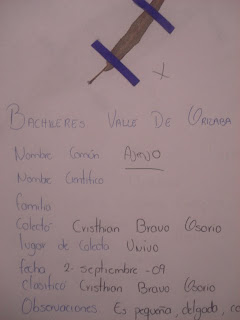 Bachilleres Valle De Orizaba
Nombre Común Ajenjo
Nombre Cientifico
familia
Colecto: Cristhian Bravo Osorio
lugar de Colecta Vivivo
fecha 2- septiembre -09
clasificó Cristhian Bravo Osorio
Observaciones Es pequeña, delgado, co